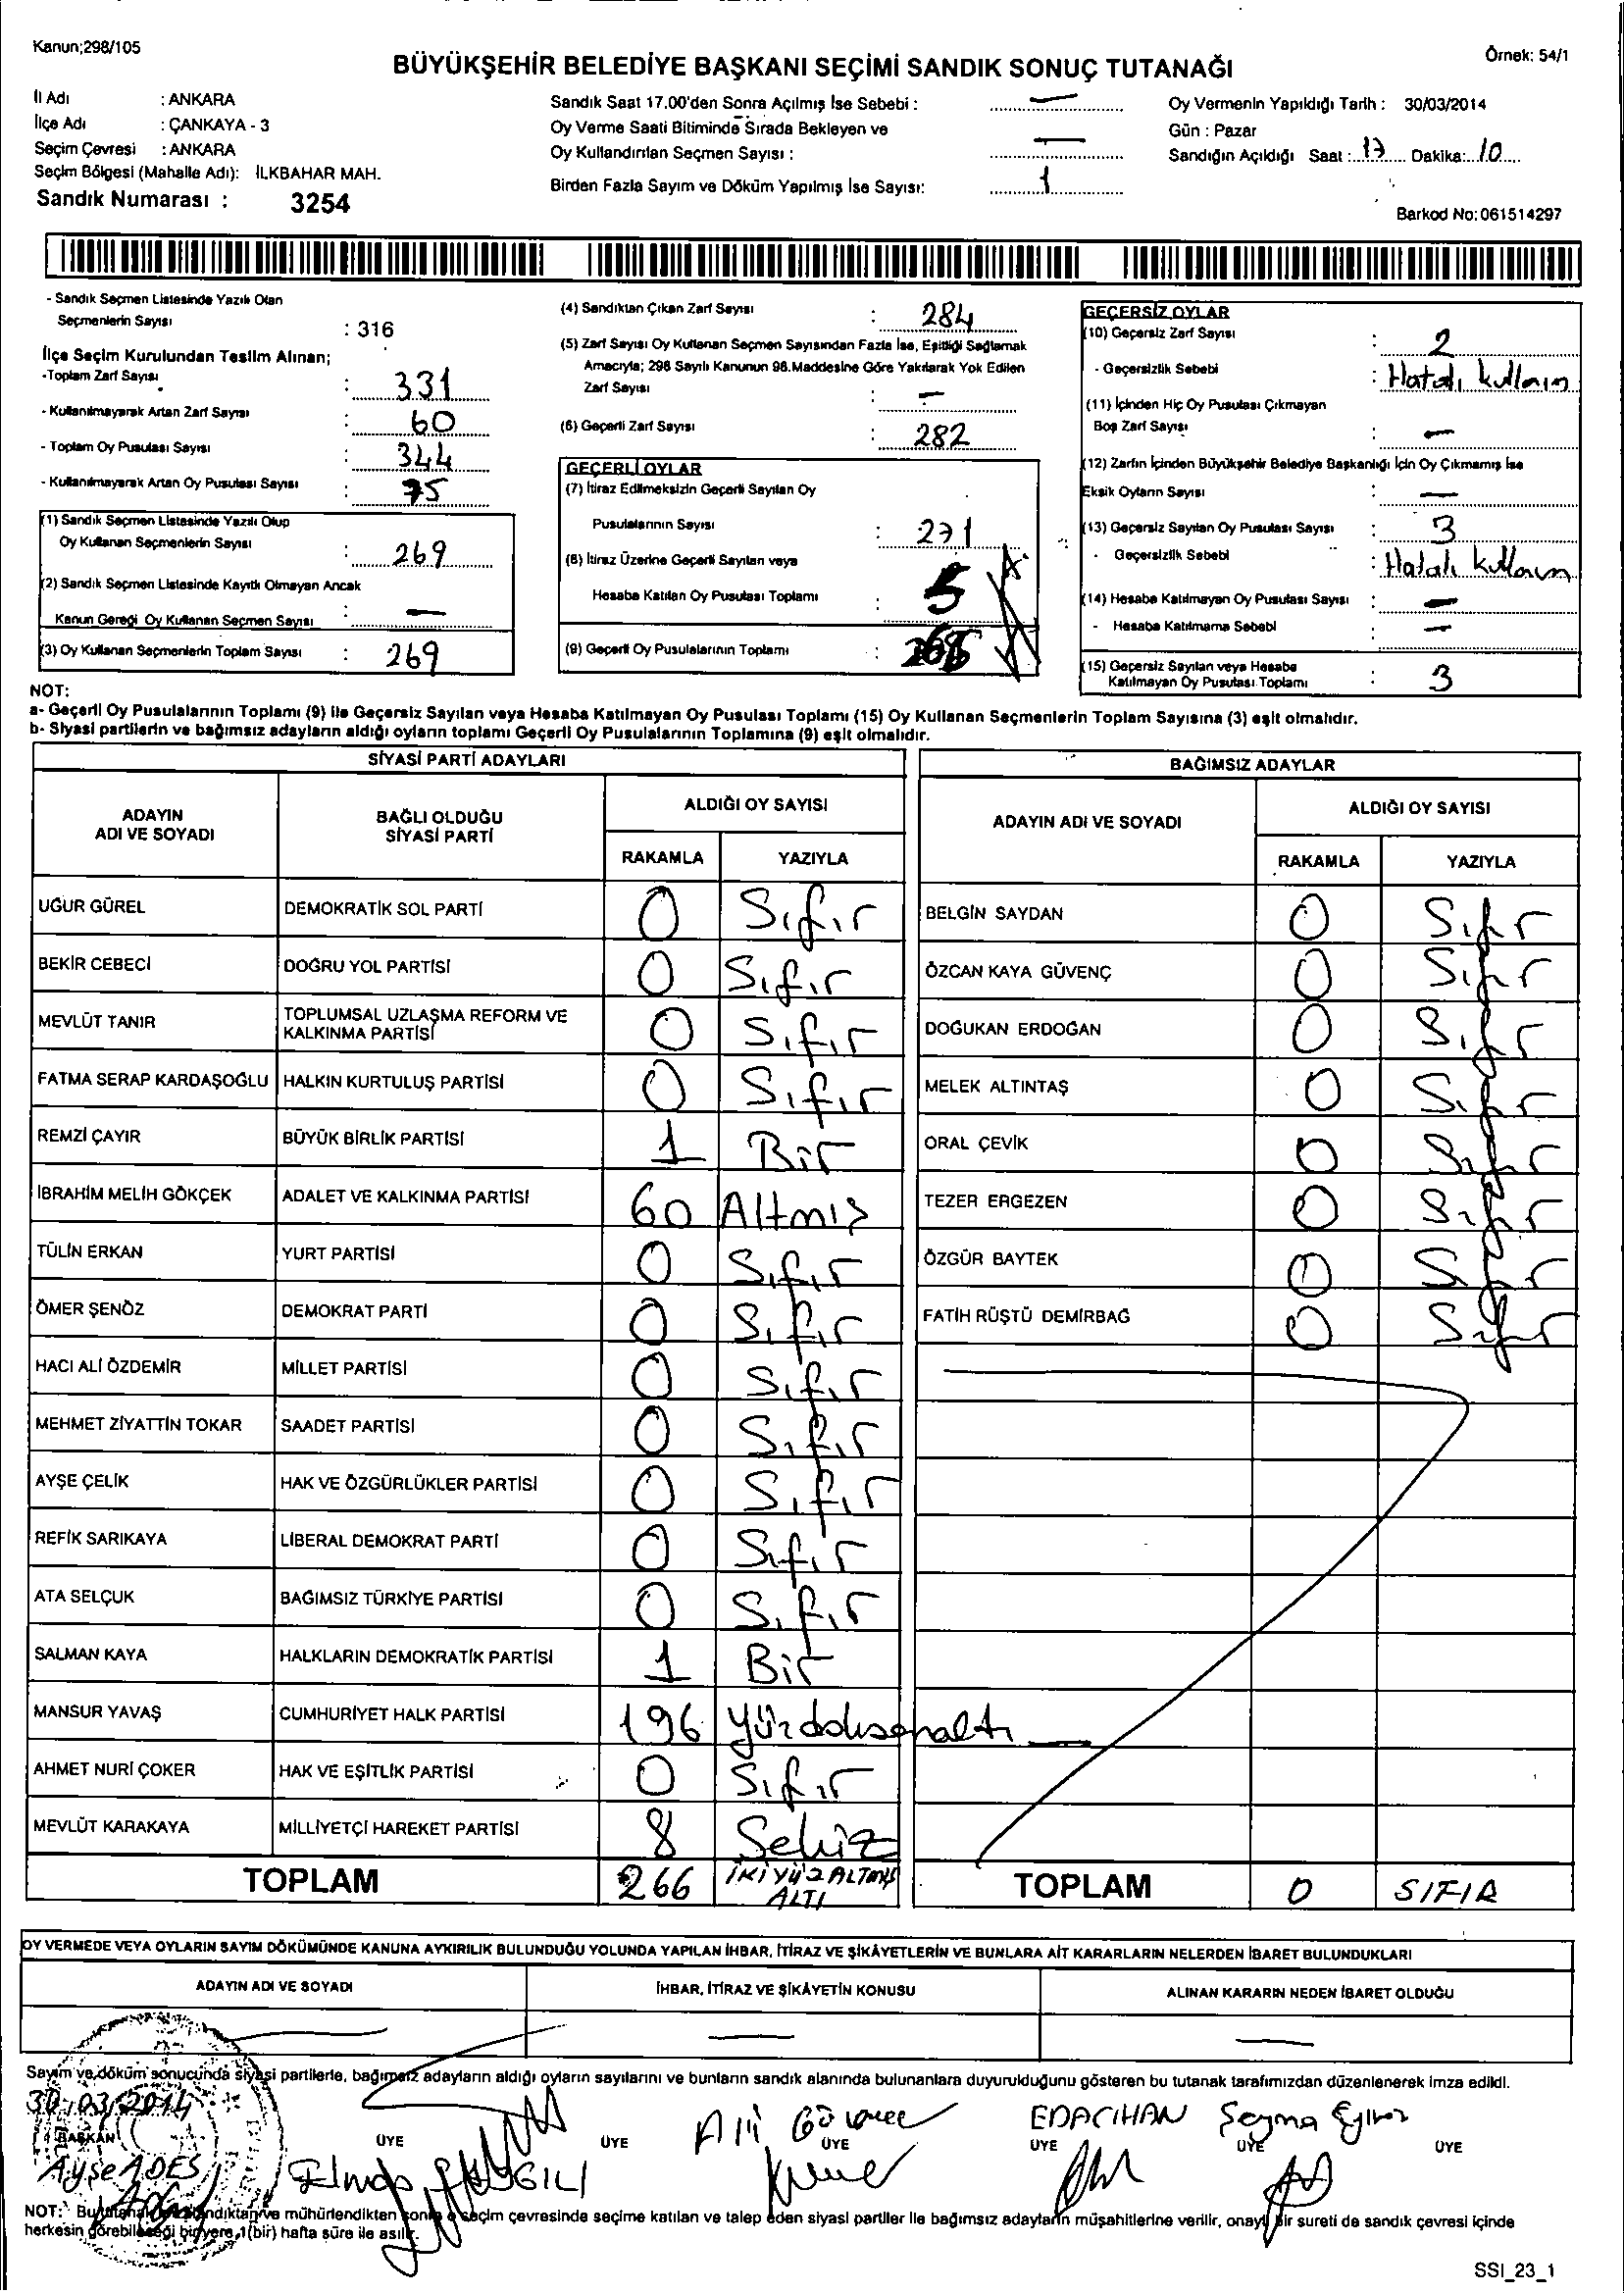 Kanun;298/105
Örnek: 54/1
BÜYÜKŞEHİR BELEDİYE BAŞKANI SEÇİMİ SANDIK SONUÇ TUTANAĞI
İl Adı : ANKARA
İlçe Adı : ÇANKAYA - 3
Seçim Çevresi : ANKARA
Seçim Bölgesi (Mahalle Adı): İLKBAHAR MAH.
Sandık Numarası : 3254
Sandık Saat 17.00'den Sonra Açılmış İse Sebebi : —
Oy Verme Saati Bitiminde Sırada Bekleyen ve
Oy Kullandırılan Seçmen Sayısı : —
Birden Fazla Sayım ve Döküm Yapılmış İse Sayısı: 1
Oy Vermenin Yapıldığı Tarih : 30/03/2014
Gün : Pazar
Sandığın Açıldığı Saat : 17 Dakika: 10
Barkod No: 061514297
- Sandık Seçmen Listesinde Yazılı Olan
Seçmenlerin Sayısı : 316
İlçe Seçim Kurulundan Teslim Alınan;
-Toplam Zarf Sayısı : 331
- Kullanılmayarak Artan Zarf Sayısı : 60
- Toplam Oy Pusulası Sayısı : 344
- Kullanılmayarak Artan Oy Pusulası Sayısı : 75
(1) Sandık Seçmen Listesinde Yazılı Olup
Oy Kullanan Seçmenlerin Sayısı : 269
(2) Sandık Seçmen Listesinde Kayıtlı Olmayan Ancak
Kanun Gereği Oy Kullanan Seçmen Sayısı : —
(3) Oy Kullanan Seçmenlerin Toplam Sayısı : 269
(4) Sandıktan Çıkan Zarf Sayısı : 284
(5) Zarf Sayısı Oy Kullanan Seçmen Sayısından Fazla İse, Eşitliği Sağlamak
Amacıyla; 298 Sayılı Kanunun 98.Maddesine Göre Yakılarak Yok Edilen
Zarf Sayısı : —
(6) Geçerli Zarf Sayısı : 282
GEÇERLİ OYLAR
(7) İtiraz Edilmeksizin Geçerli Sayılan Oy
Pusulalarının Sayısı : 271
(8) İtiraz Üzerine Geçerli Sayılan veya
Hesaba Katılan Oy Pusulası Toplamı : 5
(9) Geçerli Oy Pusulalarının Toplamı :
GEÇERSİZ OYLAR
(10) Geçersiz Zarf Sayısı : 2
- Geçersizlik Sebebi : Hatalı kullanım
(11) İçinden Hiç Oy Pusulası Çıkmayan
Boş Zarf Sayısı : —
(12) Zarfın İçinden Büyükşehir Belediye Başkanlığı İçin Oy Çıkmamış İse
Eksik Oyların Sayısı : —
(13) Geçersiz Sayılan Oy Pusulası Sayısı : 3
- Geçersizlik Sebebi : Hatalı kullanım
(14) Hesaba Katılmayan Oy Pusulası Sayısı : —
- Hesaba Katılmama Sebebi : —
(15) Geçersiz Sayılan veya Hesaba
Katılmayan Oy Pusulası Toplamı : 3
NOT:
a- Geçerli Oy Pusulalarının Toplamı (9) ile Geçersiz Sayılan veya Hesaba Katılmayan Oy Pusulası Toplamı (15) Oy Kullanan Seçmenlerin Toplam Sayısına (3) eşit olmalıdır.
b- Siyasi partilerin ve bağımsız adayların aldığı oyların toplamı Geçerli Oy Pusulalarının Toplamına (9) eşit olmalıdır.
SİYASİ PARTİ ADAYLARI
ADAYIN ADI VE SOYADI BAĞLI OLDUĞU SİYASİ PARTİ ALDIĞI OY SAYISI
RAKAMLA YAZIYLA
UĞUR GÜREL DEMOKRATİK SOL PARTİ 0 Sıfır
BEKİR CEBECİ DOĞRU YOL PARTİSİ 0 Sıfır
MEVLÜT TANIR TOPLUMSAL UZLAŞMA REFORM VE KALKINMA PARTİSİ 0 Sıfır
FATMA SERAP KARDAŞOĞLU HALKIN KURTULUŞ PARTİSİ 0 Sıfır
REMZİ ÇAYIR BÜYÜK BİRLİK PARTİSİ 1 Bir
İBRAHİM MELİH GÖKÇEK ADALET VE KALKINMA PARTİSİ 60 Altmış
TÜLİN ERKAN YURT PARTİSİ 0 Sıfır
ÖMER ŞENÖZ DEMOKRAT PARTİ 0 Sıfır
HACI ALİ ÖZDEMİR MİLLET PARTİSİ 0 Sıfır
MEHMET ZİYATTİN TOKAR SAADET PARTİSİ 0 Sıfır
AYŞE ÇELİK HAK VE ÖZGÜRLÜKLER PARTİSİ 0 Sıfır
REFİK SARIKAYA LİBERAL DEMOKRAT PARTİ 0 Sıfır
ATA SELÇUK BAĞIMSIZ TÜRKİYE PARTİSİ 0 Sıfır
SALMAN KAYA HALKLARIN DEMOKRATİK PARTİSİ 1 Bir
MANSUR YAVAŞ CUMHURİYET HALK PARTİSİ 196 Yüzdoksanaltı
AHMET NURİ ÇOKER HAK VE EŞİTLİK PARTİSİ 0 Sıfır
MEVLÜT KARAKAYA MİLLİYETÇİ HAREKET PARTİSİ 8 Sekiz
TOPLAM 266 İKİYÜZALTMIŞ ALTI
BAĞIMSIZ ADAYLAR
ADAYIN ADI VE SOYADI ALDIĞI OY SAYISI
RAKAMLA YAZIYLA
BELGİN SAYDAN 0 Sıfır
ÖZCAN KAYA GÜVENÇ 0 Sıfır
DOĞUKAN ERDOĞAN 0 Sıfır
MELEK ALTINTAŞ 0 Sıfır
ORAL ÇEVİK 0 Sıfır
TEZER ERGEZEN 0 Sıfır
ÖZGÜR BAYTEK 0 Sıfır
FATİH RÜŞTÜ DEMİRBAĞ 0 Sıfır
TOPLAM 0 SIFIR
OY VERMEDE VEYA OYLARIN SAYIM DÖKÜMÜNDE KANUNA AYKIRILIK BULUNDUĞU YOLUNDA YAPILAN İHBAR, İTİRAZ VE ŞİKÂYETLERİN VE BUNLARA AİT KARARLARIN NELERDEN İBARET BULUNDUKLARI
ADAYIN ADI VE SOYADI İHBAR, İTİRAZ VE ŞİKÂYETİN KONUSU ALINAN KARARIN NEDEN İBARET OLDUĞU
Sayım ve döküm sonucunda siyasi partilerle, bağımsız adayların aldığı oyların sayılarını ve bunların sandık alanında bulunanlara duyurulduğunu gösteren bu tutanak tarafımızdan düzenlenerek imza edildi.
30/03/2014
BAŞKAN ÜYE ÜYE ÜYE ÜYE ÜYE ÜYE
Ayşe ADES
Ali
EDA CİHAN Şeyma
NOT: Bu sandıktan ve mühürlendikten sonra o seçim çevresinde seçime katılan ve talep eden siyasi partiler ile bağımsız adayların müşahitlerine verilir, onaylı bir sureti de sandık çevresi içinde
herkesin görebileceği bir yere 1(bir) hafta süre ile asılır.
SSI_23_1